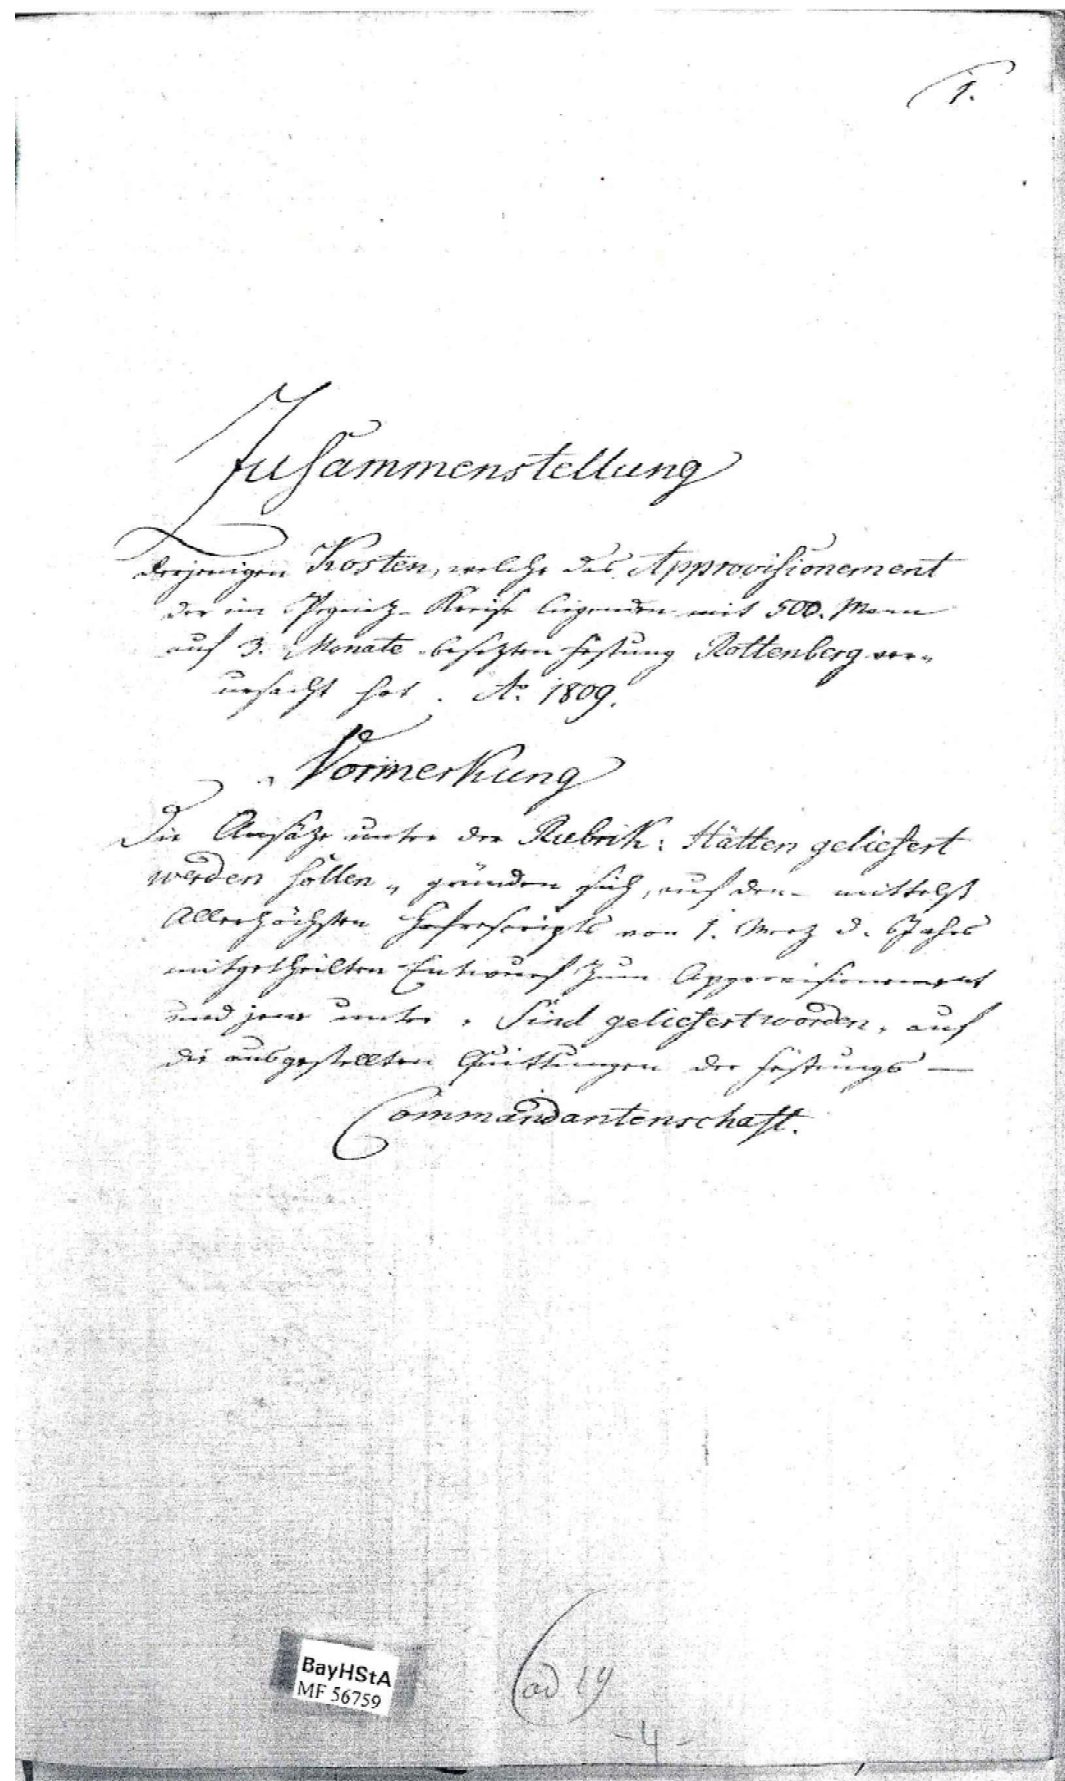 1.
Zusammenstellung
derjenigen Kosten, welche das Approvisionement
der im Pegnitz-Kreise liegenden mit 500. Mann
auf 3. Monate besetzten Festung Rottenberg ver„
ursacht hat. Ao. 1809.
Vormerkung
Die Ansätze unter der Rubrik: Hätten geliefert
werden sollen„ gründen sich, auf den mittelst
Allerhöchsten Hofrescripts von 1. Merz d. Jahrs
mitgetheilten Entwurf zum Approvisionement
und jene unter „ Sind geliefert worden, auf
die ausgestellten Quittungen der Festungs—
Commandantenschaft.
BayHStA
MF 56759
ad 19
- 4 -